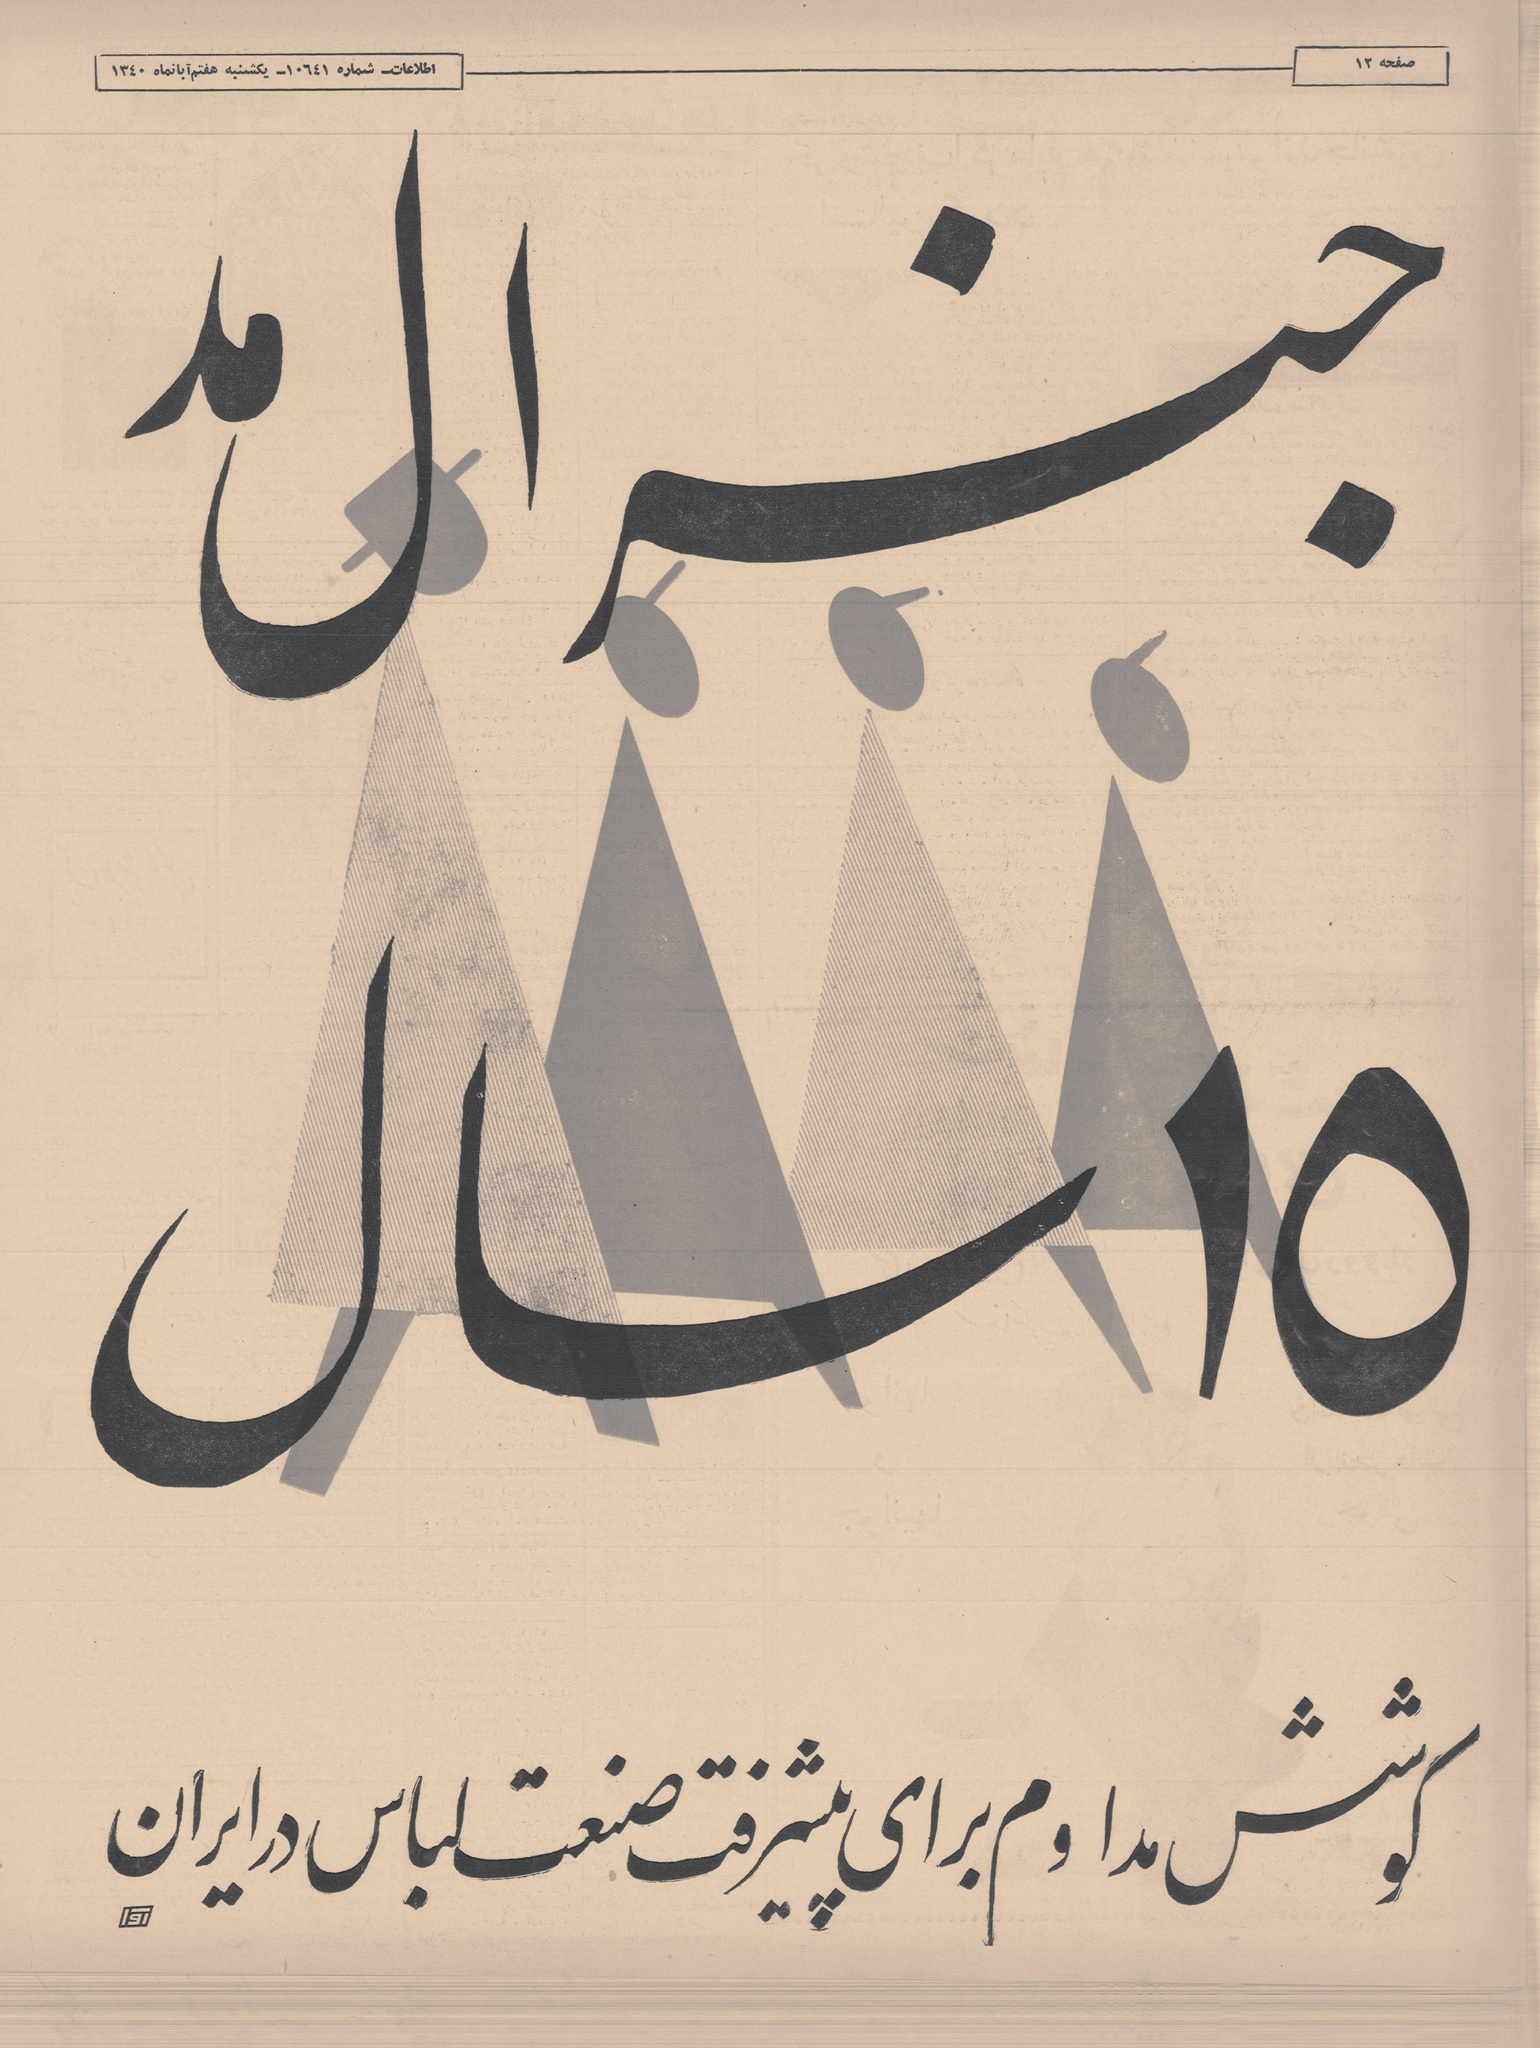 صفحه ۱۲
اطلاعات_ شماره ۱۰٦٤۱_ یکشنبه هفتم‌آبانماه ۱۳٤۰
جنرال مد
۱۵ سال
کوشش مداوم برای پیشرفت صنعت لباس در ایران